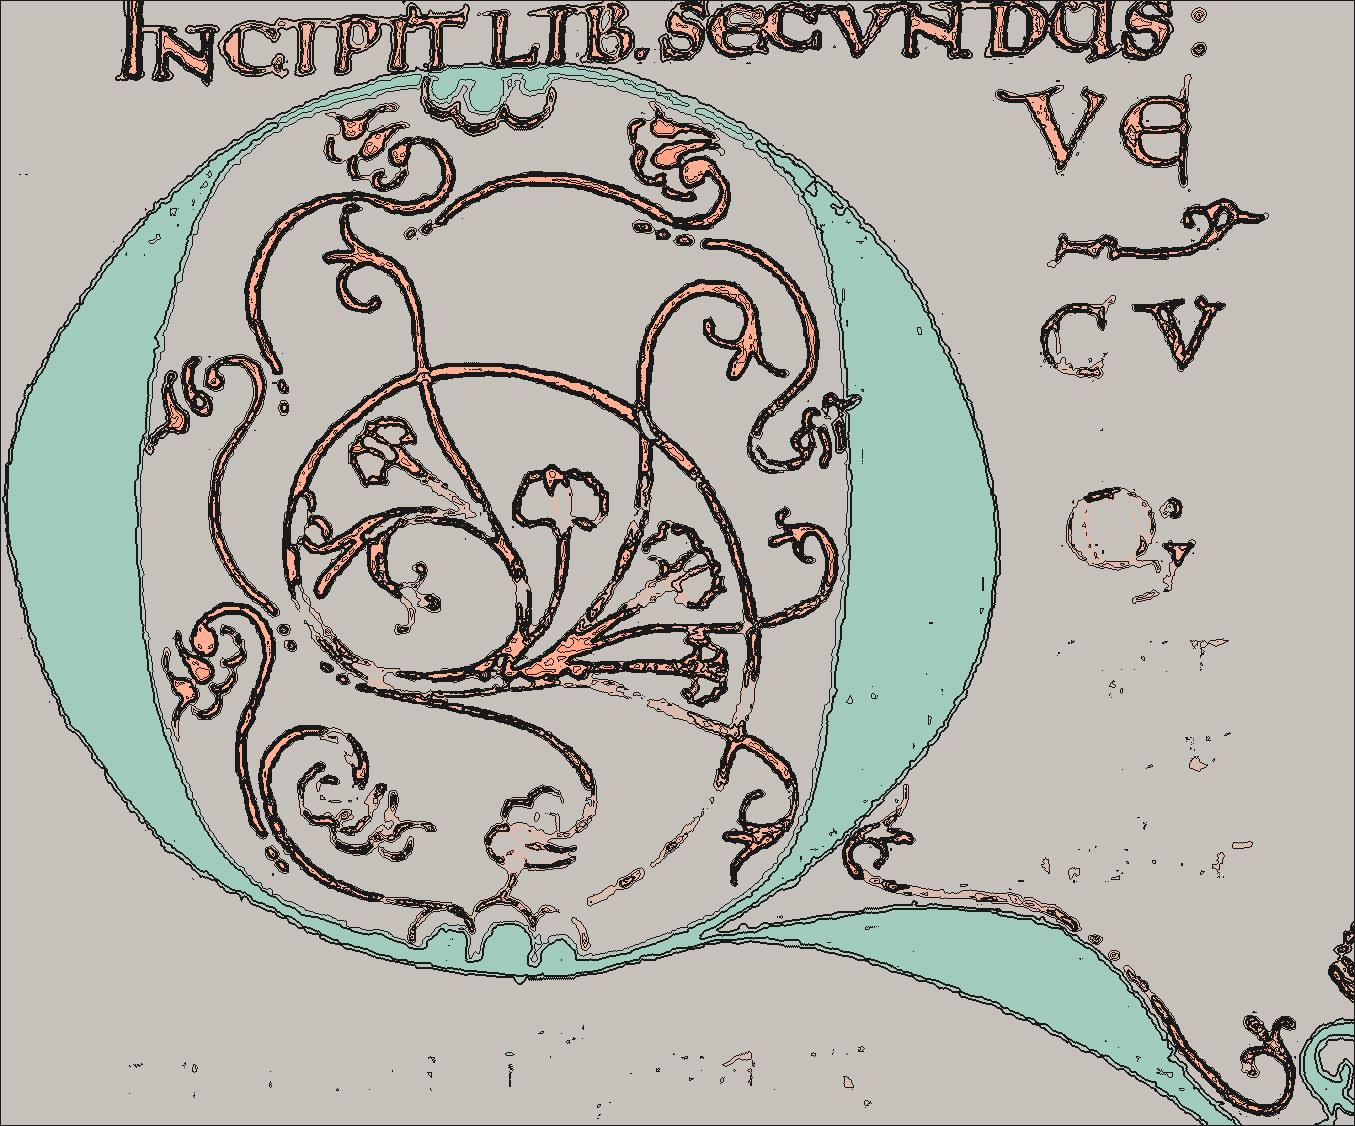 INCIPIT LIB. SECVNDUS:
Q VE
CV
Q;